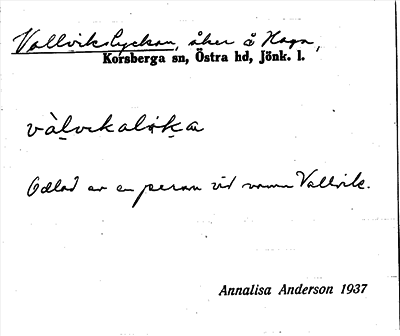 Vallvikslyckan, åker å Haga,
Korsberga sn, Östra hd, Jönk. l.
vàlvekaløka
Odlad av en person vid namn Vallvik.
Annalisa Anderson 1937